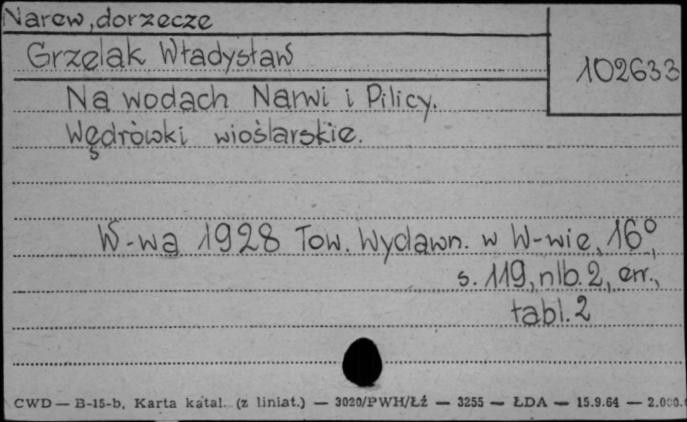 Narew, dorzecze
Grzelak Władysław
102633
Na wodach Narwi i Pilicy.
Wędrówki wioślarskie.
W-wa 1928 Tow. Wydawn. w W-wie, 16°,
s. 119, nlb. 2, err.,
tabl. 2
CWD — B-15-b, Karta katal. (z liniat.) — 3020/PWH/Łź — 3255 — ŁDA — 15.9.64 — 2.000.